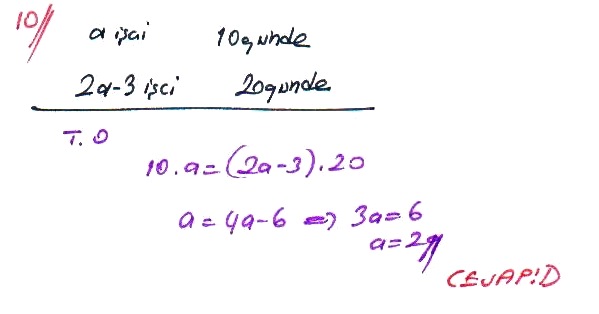 10// a işçi 10günde
2a-3 işçi 20günde
T. O
10.a=(2a-3).20
a=4a-6 => 3a=6
a=2//
CEVAP:D